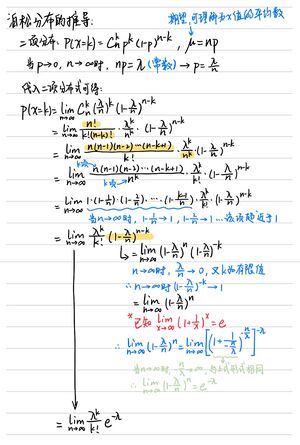 泊松分布的推导:
二项分布: P(X=k) = Cₙᵏ pᵏ (1-p)ⁿ⁻ᵏ , μ = np
期望,可理解为X值的平均数
当 p→0, n→∞时, np = λ (常数) → p = λ/n
代入二项分布式可得:
P(X=k) = lim n→∞ Cₙᵏ (λ/n)ᵏ (1-λ/n)ⁿ⁻ᵏ
= lim n→∞ n!/k!(n-k)! · λᵏ/nᵏ · (1-λ/n)ⁿ⁻ᵏ
= lim n→∞ n(n-1)(n-2)···(n-k+1)/k! · λᵏ/nᵏ · (1-λ/n)ⁿ⁻ᵏ
= lim n→∞ n(n-1)(n-2)···(n-k+1)/nᵏ · λᵏ/k! · (1-λ/n)ⁿ⁻ᵏ
k项
k项
= lim n→∞ 1·(1-1/n)·(1-2/n)·...·(1-k-1/n)·λᵏ/k!·(1-λ/n)ⁿ⁻ᵏ
当n→∞时, 1-1/n→1, 1-2/n→1 ... 该项趋近于1
= lim n→∞ λᵏ/k! (1-λ/n)ⁿ⁻ᵏ
= lim n→∞ (1-λ/n)ⁿ (1-λ/n)⁻ᵏ
n→∞时, λ/n→0, 又k为有限值
∴ n→∞时 (1-λ/n)⁻ᵏ → 1
= lim n→∞ (1-λ/n)ⁿ
*已知 lim x→∞ (1+1/x)ˣ = e
∴ lim n→∞ (1-λ/n)ⁿ = lim n→∞ [(1+1/-n/λ)^-n/λ]^-λ
当n→∞时, 与上式形式相同
∴ lim n→∞ (1-λ/n)ⁿ = e^-λ
= lim n→∞ λᵏ/k! e^-λ